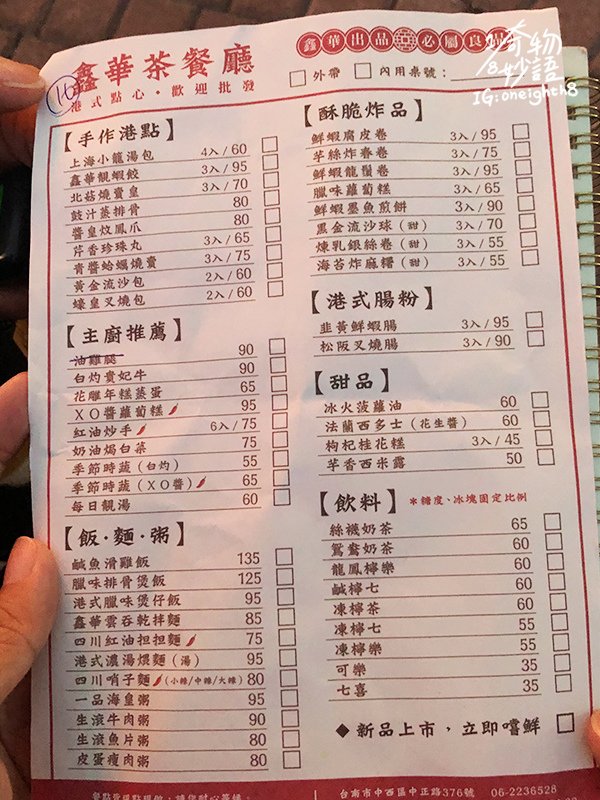 奇物
8妙語
IG:oneighth8
16
鑫華茶餐廳
港式點心·歡迎批發
鑫華出品 必屬良品
外帶 內用桌號:
【手作港點】
上海小籠湯包 4入/60
鑫華靚蝦餃 3入/95
北菇燒賣皇 3入/70
豉汁蒸排骨 80
醬皇炆鳳爪 80
芹香珍珠丸 3入/65
青醬蛤蠣燒賣 3入/75
黃金流沙包 2入/60
蠔皇叉燒包 2入/60
【主廚推薦】
油雞腿 90
白灼貴妃牛 90
花雕年糕蒸蛋 65
XO醬蘿蔔糕 95
紅油炒手 6入/75
奶油焗白菜 75
季節時蔬(白灼) 55
季節時蔬(XO醬) 65
每日靚湯 60
【飯·麵·粥】
鹹魚滑雞飯 135
臘味排骨煲飯 125
港式臘味煲仔飯 95
鑫華雲吞乾拌麵 85
四川紅油担担麵 75
港式濃湯煨麵(湯) 95
四川哨子麵(小辣/中辣/大辣) 80
一品海皇粥 95
生滾牛肉粥 90
生滾魚片粥 80
皮蛋瘦肉粥 80
【酥脆炸品】
鮮蝦腐皮卷 3入/95
芋絲炸春卷 3入/75
鮮蝦龍鬚卷 3入/95
臘味蘿蔔糕 3入/65
鮮蝦墨魚煎餅 3入/90
黑金流沙球(甜) 3入/70
煉乳銀絲卷(甜) 3入/55
海苔炸麻糬(甜) 3入/55
【港式腸粉】
韭黃鮮蝦腸 3入/95
松阪叉燒腸 3入/90
【甜品】
冰火菠蘿油 60
法蘭西多士(花生醬) 60
枸杞桂花糕 3入/45
芋香西米露 50
【飲料】 *糖度、冰塊固定比例
絲襪奶茶 65
鴛鴦奶茶 60
龍鳳檸樂 60
鹹檸七 60
凍檸茶 60
凍檸七 55
凍檸樂 55
可樂 35
七喜 35
◆新品上市,立即嚐鮮
台南市中西區中正路376號 06-2236528